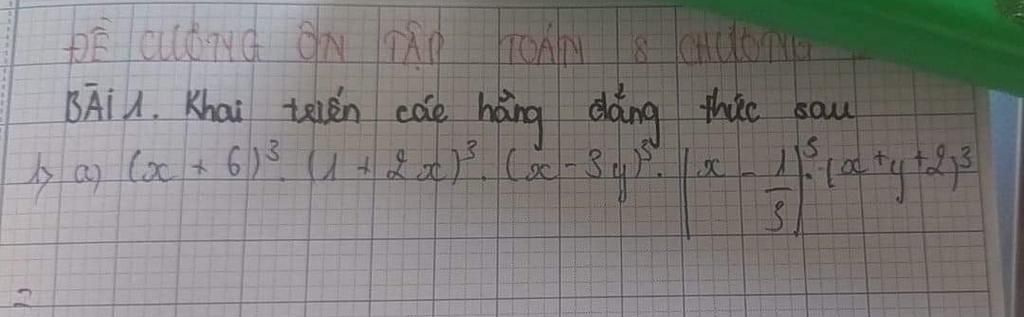 ĐỀ CƯƠNG ÔN TẬP TOÁN 8 CHƯƠNG
BÀI 1. Khai triển các hằng đẳng thức sau
1, a) (x + 6)³. (1 + 2x)³. (x - 3y)³. (x - 1/3)³. (x + y + 2)³
2